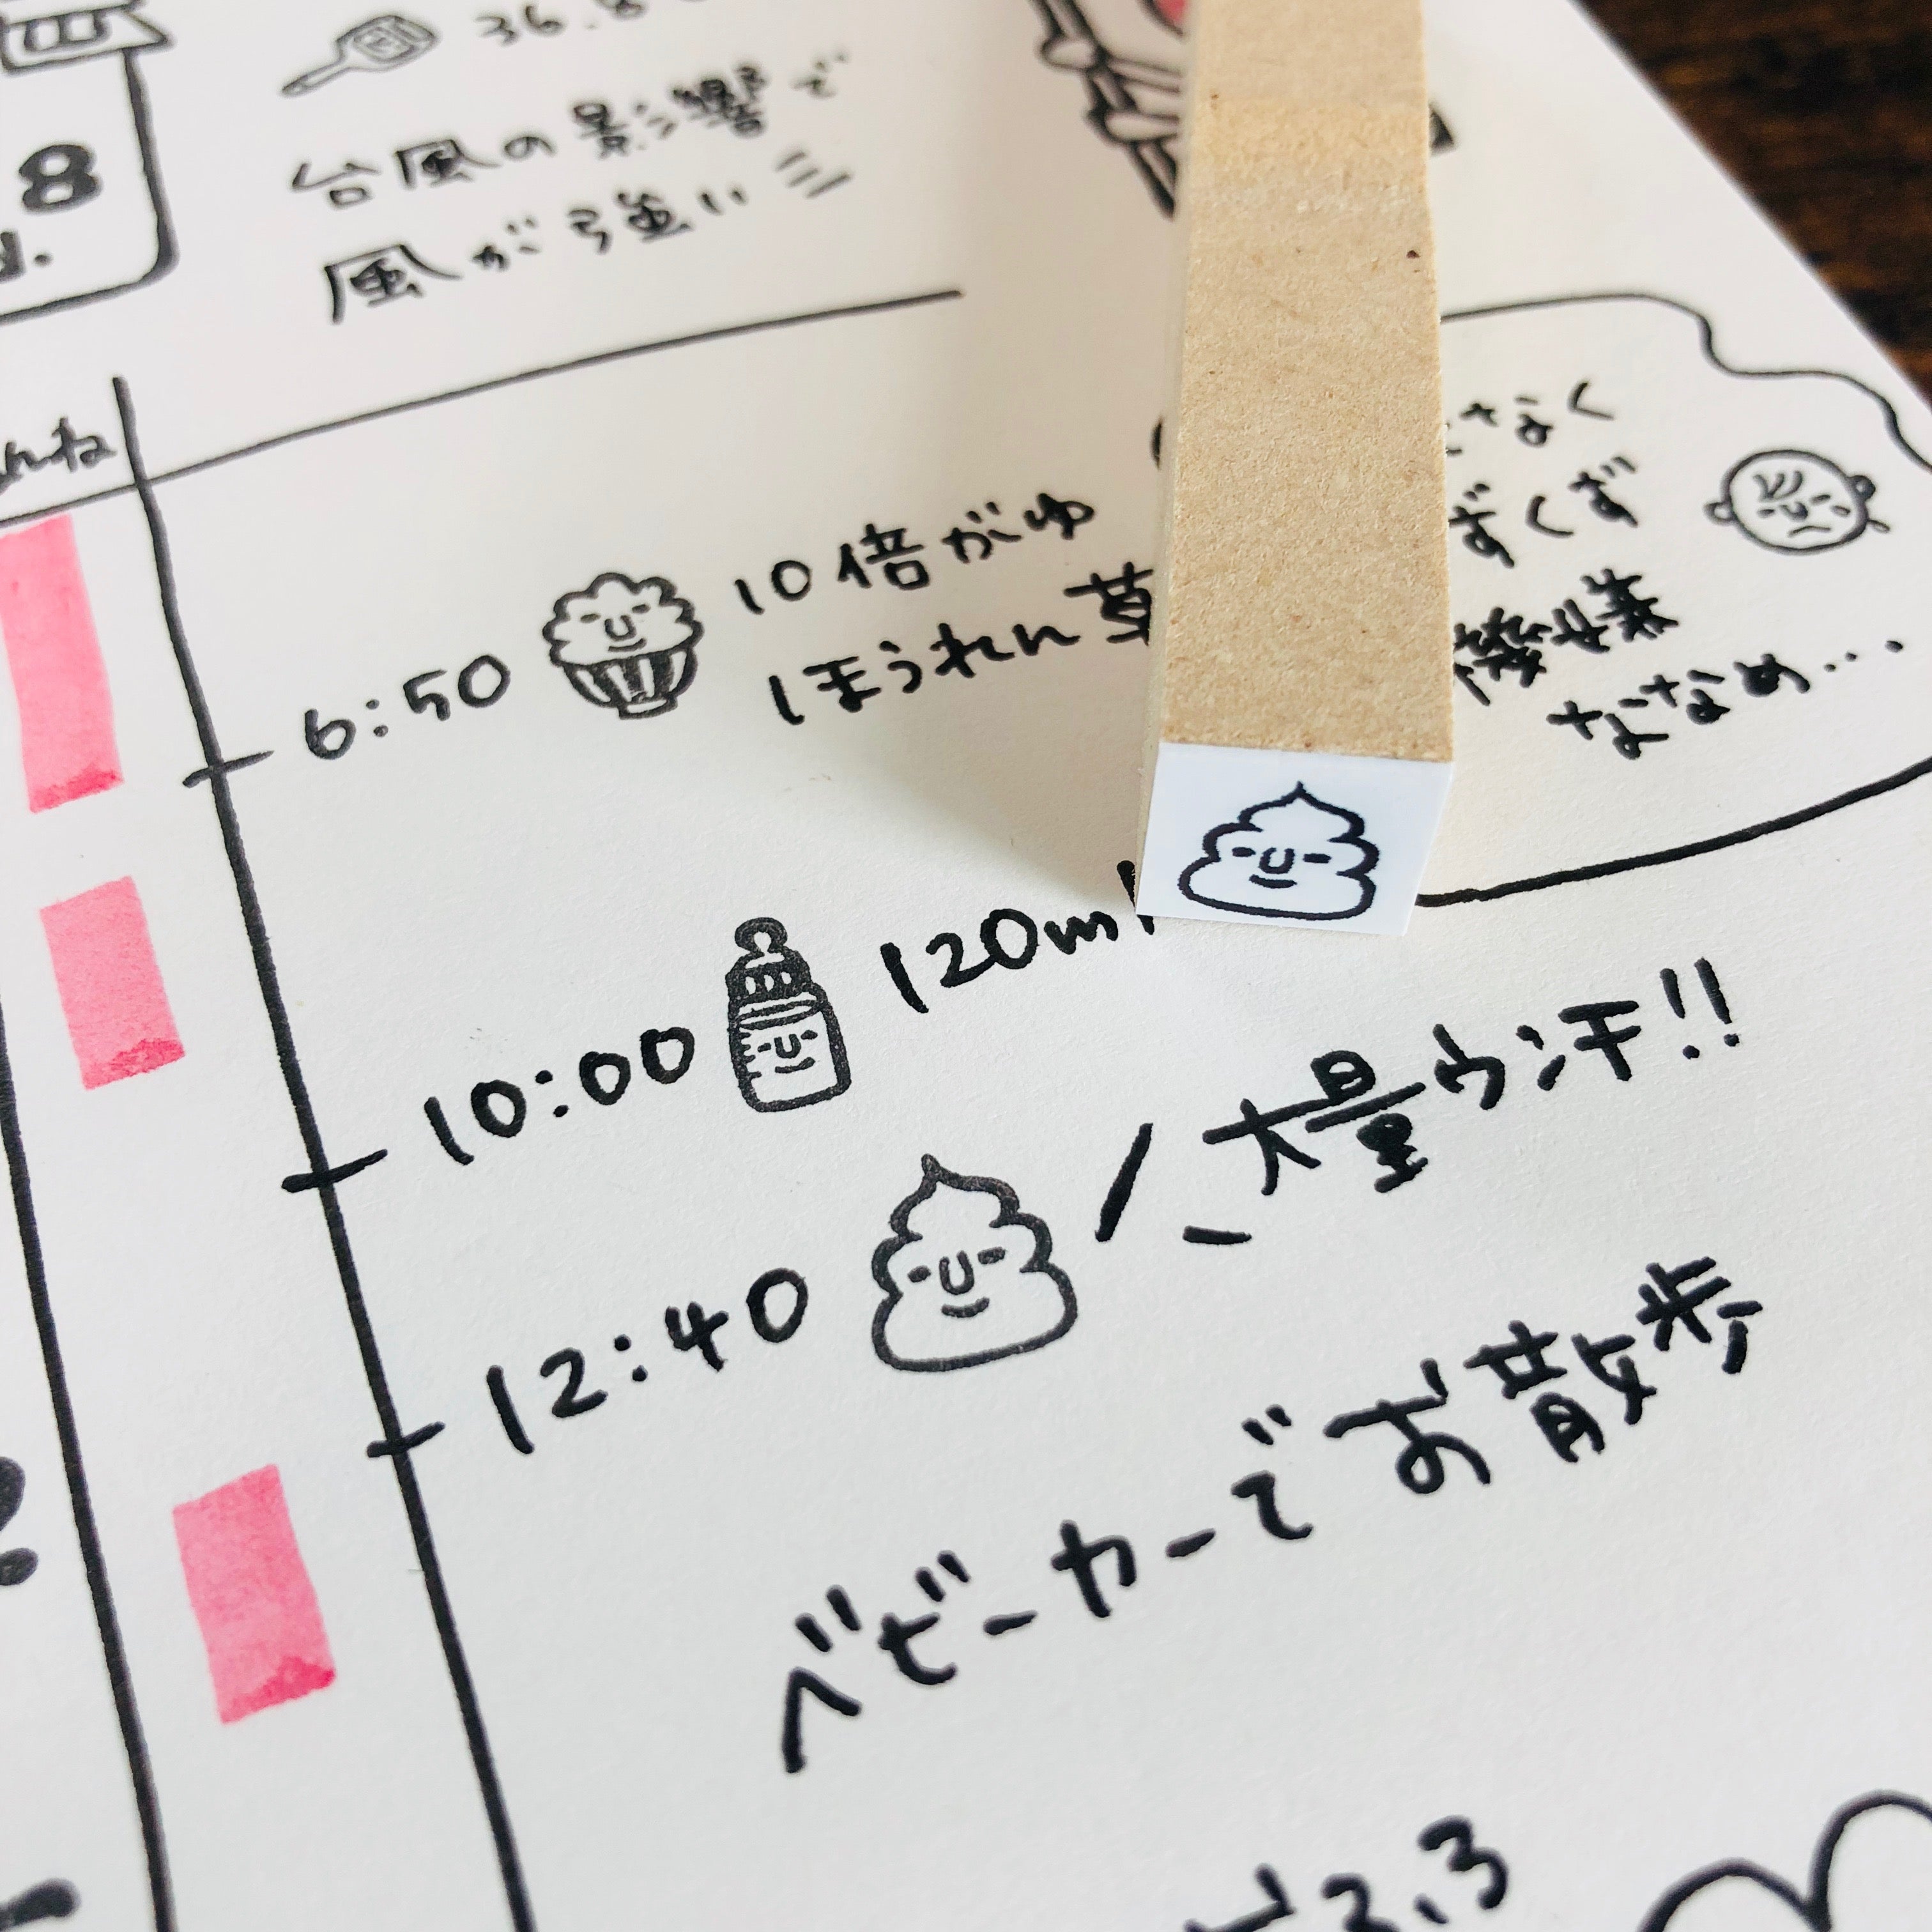 36.8
台風の影響で
風が強い
8
んね
6:50 10倍がゆ
ほうれん草
なく
ずくず
機嫌
ななめ…
10:00 120ml
12:40 大量ウン汗!!
ベビーカーでお散歩
2,3